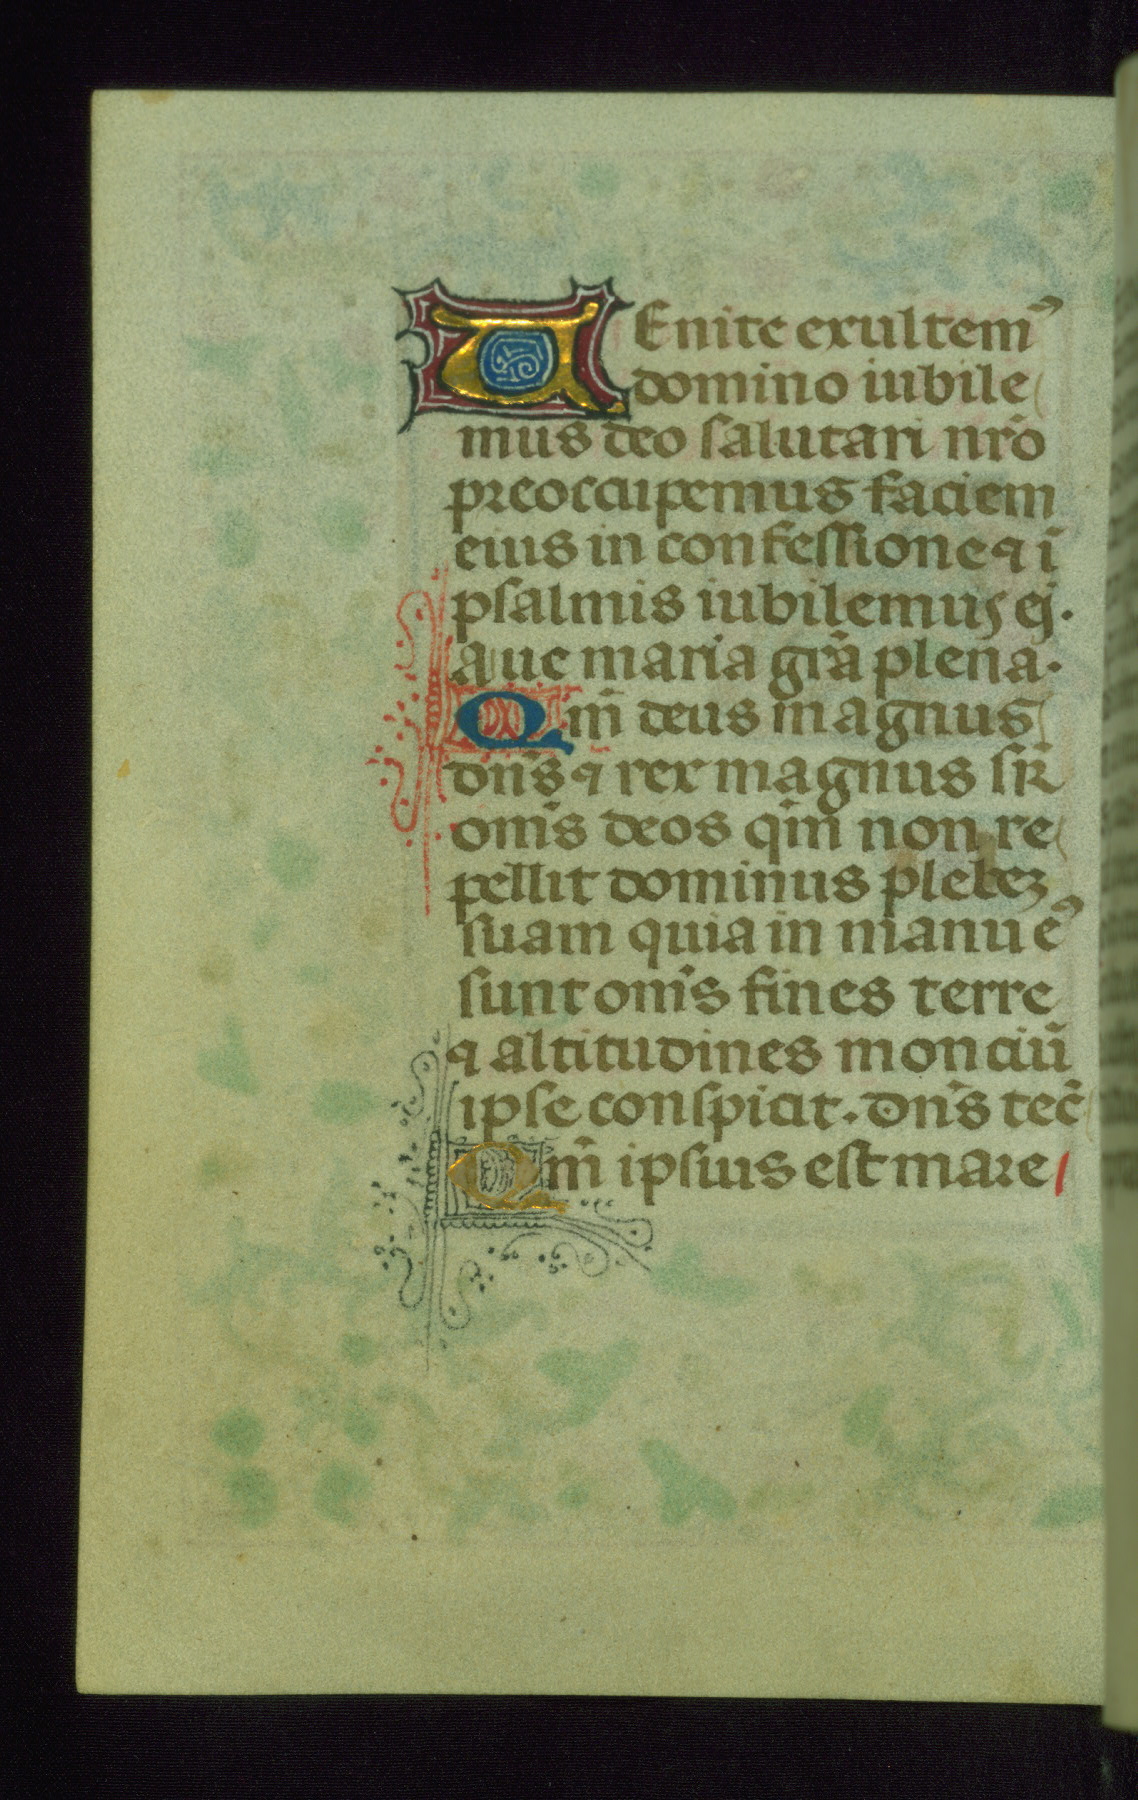 VEnite exultemꝰ
domino iubile
mus deo salutari nr̃o
preoccupemus faciem
eius in confessione ⁊ ĩ
psalmis iubilemus ei.
aue maria gr̃a plena.
Qm̃ deus magnus
dñs ⁊ rex magnus sr̃
om̃s deos qm̃ non re
pellit dominus plebeʒ
suam quia in manu eꝰ
sunt om̃s fines terre
⁊ altitudines monciũ
ipse conspicit. dñs tec̃
Qm̃ ipsius est mare